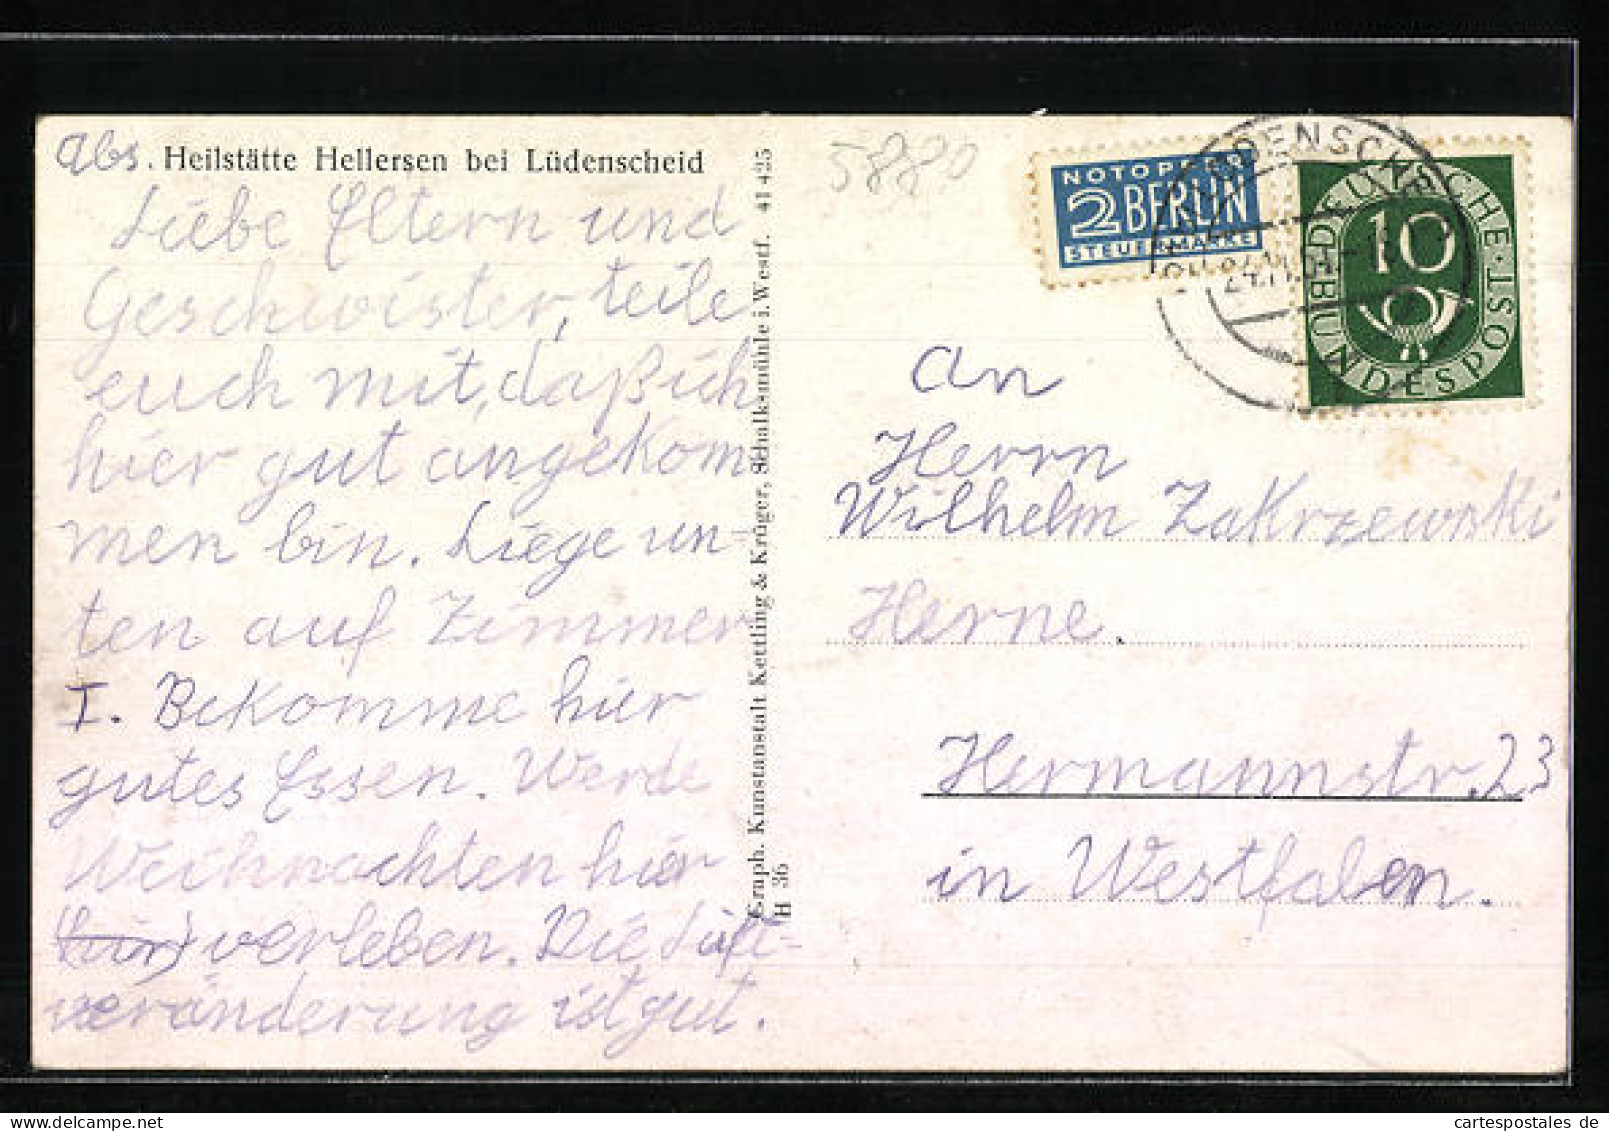 Abs. Heilstätte Hellersen bei Lüdenscheid
Liebe Eltern und
Geschwister, teile
euch mit, daß ich
hier gut angekom
men bin. Liege un-
ten auf Zimmer
I. Bekomme hier
gutes Essen. Werde
Weihnachten hier
(hier) verleben. Die Luft-
veränderung ist gut.
Graph. Kunstanstalt Kettling & Krüger, Schalksmühle i. Westf. 41425
H 36
5880
NOTOPFER
2 BERLIN
STEUERMARKE
DEUTSCHE BUNDESPOST
10
An
Herrn
Wilhelm Zakrzewski
Herne.
Hermannstr. 23
in Westfalen.
cartespostales.de